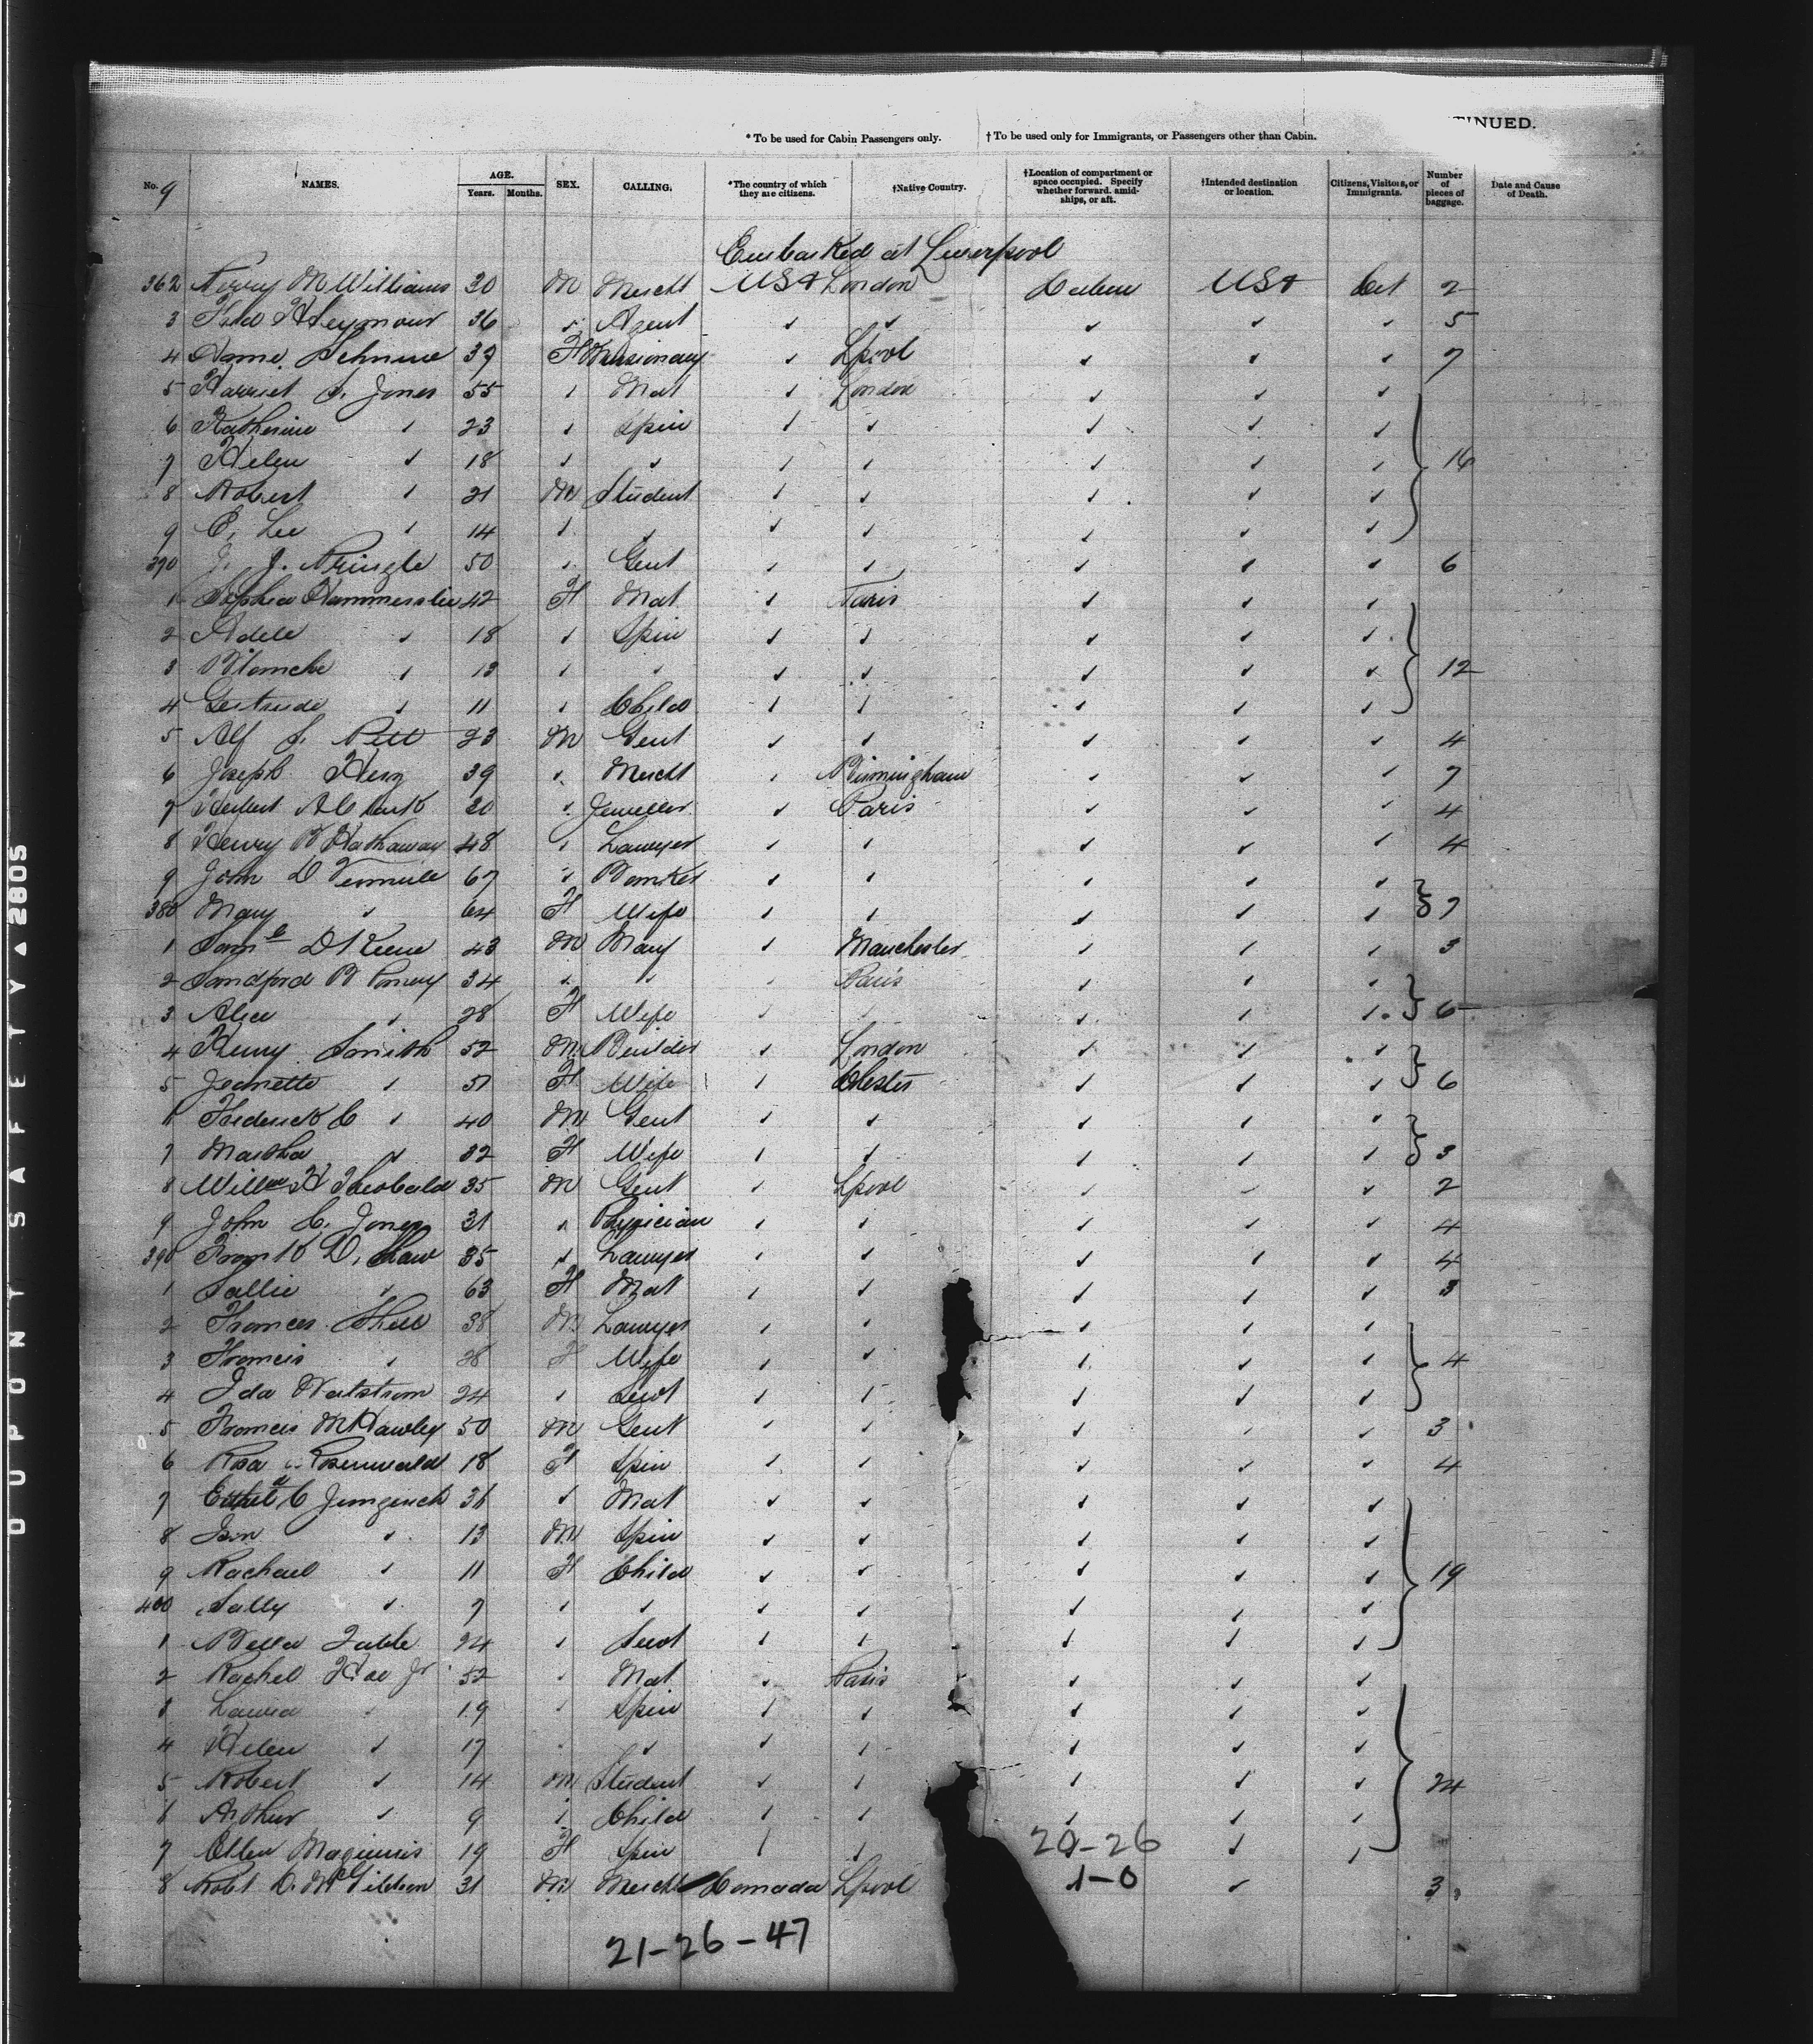 TINUED.
* To be used for Cabin Passengers only. † To be used only for Immigrants, or Passengers other than Cabin.
No. 9 NAMES. AGE. Years. Months. SEX. CALLING. *The country of which they are citizens. †Native Country. †Location of compartment or space occupied. Specify whether forward, amidships, or aft. †Intended destination or location. Citizens, Visitors, or Immigrants. Number of pieces of baggage. Date and Cause of Death.
Embarked at Liverpool
362 M Williams 30 M Mercht USA London USA Cit 2
3 Fred H Seymour 36 ✓ Agent ✓ ✓ ✓ ✓ ✓ 5
4 37 F Missionary ✓ Lpool ✓ ✓ ✓ 7
5 Harriet S. Jones 55 ✓ Mat ✓ London ✓ ✓ ✓
6 Katherine ✓ 23 ✓ Spin ✓ ✓ ✓ ✓ ✓
7 Helen ✓ 18 ✓ ✓ ✓ ✓ ✓ ✓ ✓ 16
8 Robert ✓ 21 M Student ✓ ✓ ✓ ✓ ✓
9 E. Lee ✓ 14 ✓ ✓ ✓ ✓ ✓ ✓ ✓
370 J. J. Pringle 50 ✓ Gent ✓ ✓ ✓ ✓ ✓ 6
1 Sophia Hammerslie 42 F Mat ✓ Paris ✓ ✓ ✓
2 Adele ✓ 18 ✓ Spin ✓ ✓ ✓ ✓ ✓
3 Blanche ✓ 13 ✓ ✓ ✓ ✓ ✓ ✓ ✓ 12
4 Gertrude ✓ 11 ✓ Child ✓ ✓ ✓ ✓ ✓
5 Alf S. Pell 23 M Gent ✓ ✓ ✓ ✓ ✓ 4
6 Joseph Herz 39 ✓ Mercht ✓ Birmingham ✓ ✓ ✓ 7
7 Herbert A Clark 20 ✓ Jeweller ✓ Paris ✓ ✓ ✓ 4
8 Henry B Hathaway 48 ✓ Lawyer ✓ ✓ ✓ ✓ ✓ 4
9 John D Vermule 67 ✓ Banker ✓ ✓ ✓ ✓ ✓
380 Mary ✓ 64 F Wife ✓ ✓ ✓ ✓ ✓ 7
1 Saml D Keene 43 M Manf ✓ Manchester ✓ ✓ ✓ 3
2 Sandford B Pomeroy 34 ✓ ✓ ✓ Paris ✓ ✓ ✓
3 Alice ✓ 28 F Wife ✓ ✓ ✓ ✓ 6
4 Henry Smith 52 M Builder ✓ London ✓ ✓ ✓
5 Jeanette ✓ 51 F Wife ✓ Chester ✓ ✓ ✓ 6
6 Frederick C ✓ 40 M Gent ✓ ✓ ✓ ✓ ✓
7 Martha ✓ 32 F Wife ✓ ✓ ✓ ✓ ✓ 3
8 Willm H Theobald 35 M Gent ✓ Lpool ✓ ✓ ✓ 2
9 John C. Jones 31 ✓ Physician ✓ ✓ ✓ ✓ ✓ 4
390 Frank D. Shaw 35 ✓ Lawyer ✓ ✓ ✓ ✓ ✓ 4
1 Sallie ✓ 63 F Mat ✓ ✓ ✓ ✓ ✓ 3
2 Frances 38 M Lawyer ✓ ✓ ✓ ✓ ✓
3 Francis ✓ 28 F Wife ✓ ✓ ✓ ✓ ✓ 4
4 Ida 24 ✓ Servt ✓ ✓ ✓ ✓ ✓
5 Francis M Hawley 50 M Gent ✓ ✓ ✓ ✓ ✓ 3
6 Rosa Rosenwald 18 F Spin ✓ ✓ ✓ ✓ ✓ 4
7 C 36 ✓ Mat ✓ ✓ ✓ ✓ ✓
8 ✓ 13 M Spin ✓ ✓ ✓ ✓ ✓
9 Rachael ✓ 11 F Child ✓ ✓ ✓ ✓ ✓ 19
400 Sally ✓ 7 ✓ ✓ ✓ ✓ ✓ ✓ ✓
1 Bella 24 ✓ Servt ✓ ✓ ✓ ✓ ✓
2 Rachel Hoe Jr 52 ✓ Mat ✓ Paris ✓ ✓ ✓
3 Laura ✓ 19 ✓ Spin ✓ ✓ ✓ ✓ ✓
4 Helen ✓ 17 ✓ ✓ ✓ ✓ ✓ ✓ ✓
5 Robert ✓ 14 M Student ✓ ✓ ✓ ✓ ✓ 24
6 Arthur ✓ 9 ✓ Child ✓ ✓ ✓ ✓ ✓
7 Ellen Maginnis 19 F Spin ✓ ✓ 20-26 ✓ ✓
8 Robt D. McGibbon 31 M Mercht Canada Lpool 1-0 ✓ 3
21-26-47
DUPONT SAFETY ▲ 2805